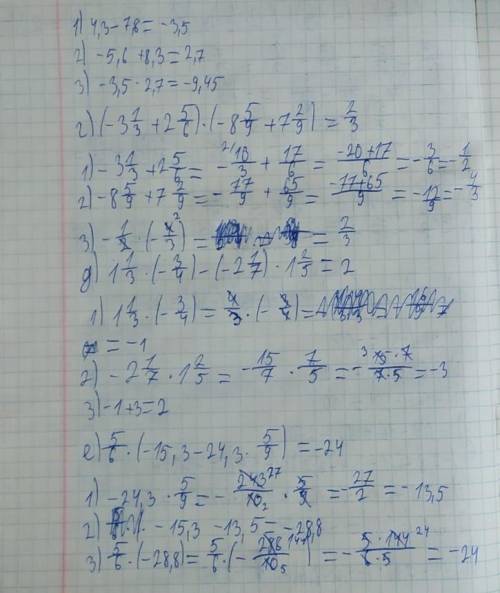 1) 4,3 - 7,8 = -3,5
2) -5,6 + 8,3 = 2,7
3) -3,5 · 2,7 = -9,45
г) (-3 1/3 + 2 5/6) · (-8 5/9 + 7 2/9) = 2/3
1) -3 1/3 + 2 5/6 = - 10/3 + 17/6 = (-20+17)/6 = - 3/6 = - 1/2
2) -8 5/9 + 7 2/9 = - 77/9 + 65/9 = (-77+65)/9 = - 12/9 = - 4/3
3) - 1/2 · (- 4/3) = 2/3
д) 1 1/3 · (- 3/4) - (-2 1/7) · 1 2/5 = 2
1) 1 1/3 · (- 3/4) = 4/3 · (- 3/4) =
= -1
2) -2 1/7 · 1 2/5 = - 15/7 · 7/5 = - (15 · 7)/(7 · 5) = -3
3) -1 + 3 = 2
е) 5/6 · (-15,3 - 24,3 · 5/9) = -24
1) -24,3 · 5/9 = - 243/10 · 5/9 = 27/2 = -13,5
2) -15,3 - 13,5 = -28,8
3) 5/6 · (-28,8) = 5/6 · (- 288/10) = - (5 · 144)/(6 · 5) = -24